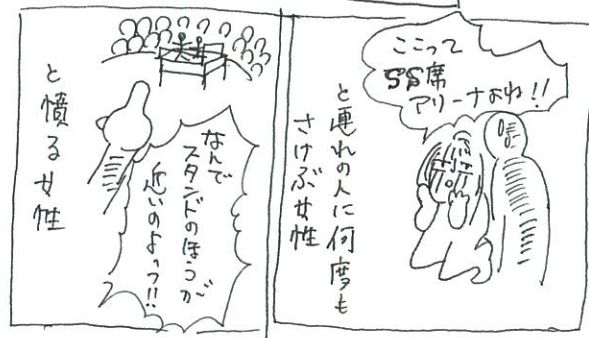 ここって
SS席
アリーナよね!!
と連れの人に何度も
さけぶ女性
なんで
スタンドのほうが
近いのよっ!!
と憤る女性